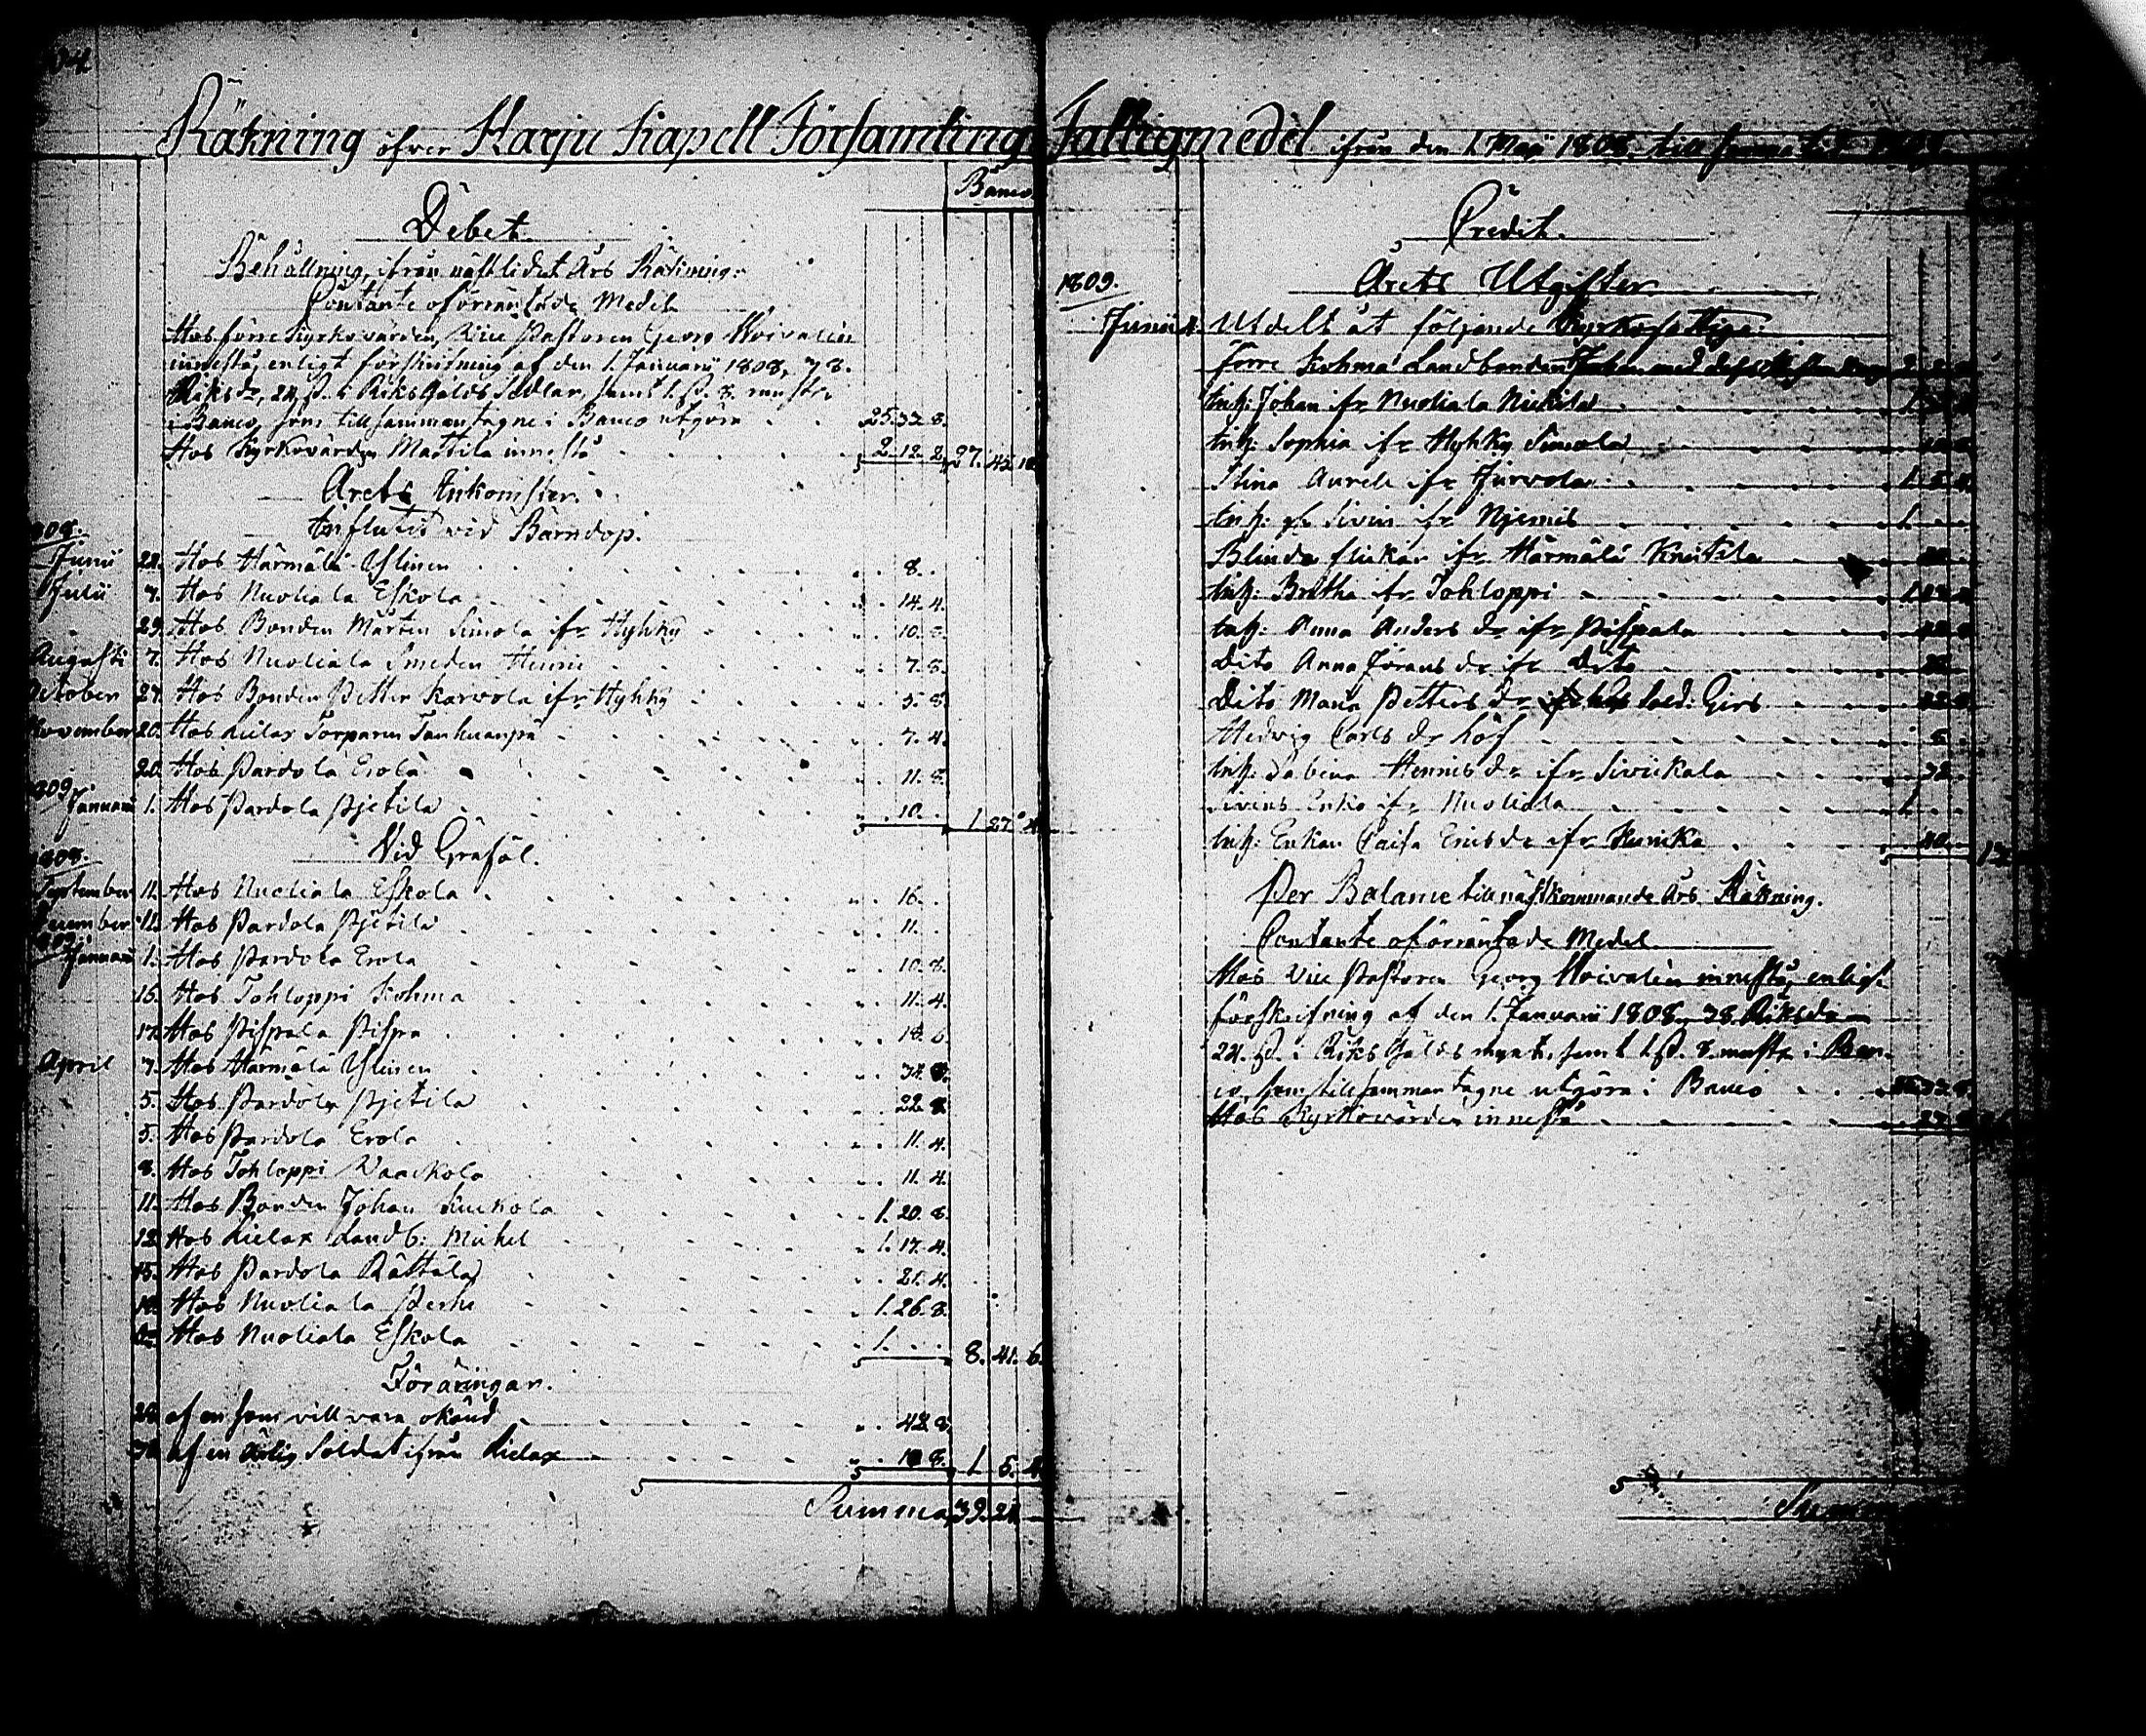 Räkning öfver Harju Kapell Församlings Fattigmedel ifrån den 1. Maji 1808. till samma tid 1809.
Banco
Debet.
Behållning, ifrån nästlidet Års Räkning:
Contante oförräntade Medel
Hos förre Kyrkovärden, Vice Pastoren Georg Woivalin
innestå, enligt förskrifning af den 1. Januarii 1808, 38.
Riksdr, 24 ß. i Riks Gälds Sedlar, samt 1. ß. 8. runstr.
i Banco, som tillsammantagne i Banco utgöra 25. 32. 8.
Hos Kyrkovärden Mattila innestå 2. 12. 2. 27. 44. 10.
Årets Inkomster.
Influtit vid Barndop.
1808.
Junii 22. Hos Härmälä Ylinen 8.
Julii 7. Hos Nuoliala Eskola 14. 4.
29. Hos Bonden Mårten Simola ifr. Hyhky 10. 8.
Augusti 7. Hos Nuoliala Smeden Henric 7. 8.
October 27. Hos Bonden Petter Karvola ifr. Hyhky 5. 8.
November 20. Hos Lielax Torparen Tanhuanpä 7. 4.
20. Hos Pardola Erola 11. 8.
1809.
Januarii 1. Hos Pardola Pjetilä 10. 1. 27. 4.
Vid Grafäl.
1808.
September 11. Hos Nuoliala Eskola 16.
December 11. Hos Pardola Pjetilä 11.
1809.
Januarii 1. Hos Pardola Erola 10. 8.
16. Hos Tohloppi Kohma 11. 4.
17. Hos Pispala Pispa 18. 6.
April 4. Hos Härmälä Ylinen 32. 8.
5. Hos Pardola Pjetilä 22. 8.
5. Hos Pardola Erola 11. 4.
8. Hos Tohloppi Waackola 11. 4.
11. Hos Bonden Johan Kuckola 1. 20. 8.
12. Hos Lielax Landb: Michel 1. 17. 4.
15. Hos Pardola Rättälä 21. 4.
Hos Nuoliala Perhe 1. 26. 8.
Hos Nuoliala Eskola 1. 8. 41. 6.
Föräringar.
28. af en som vill vara okänd 42. 8.
30. af en ärlig Soldat ifrån Lielax 10. 8. 1. 5. 4.
Summa 39. 21.
Credit.
1809. Årets Utgifter.
Junii 4. Utdelt åt följande Kyrkofattige:
Förre Kohma Landbonden
Inh: Johan ifr. Nuoliala Nickilä
Inh: Sophia ifr. Hyhky Simola
Stina Aurele ifr. Jurvola
Inh: ifr. Njemis 1.
Blinda flickan ifr. Härmälä Knuttila
Inh: Britha ifr. Tohloppi
Inh: Anna Anders dr ifr. Pispala
Dito Anna Jörans dr ifr. Dito
Dito Maria Petters dr hos Sold: Girs
Hedvig Carls dr Höst
Inh: Sabina Hennis dr ifr. Siviikala 32.
Sivius Enka ifr. Nuoliala 1.
Inh: Enkan Caisa Erics dr ifr. Kuricka 40.
Per Balance till näst kommande Års Räkning.
Contante oförräntade Medel.
Hos Vice Pastoren Georg Woivalin innestå, enligt
förskrifning af den 1. Januarii 1808, 38. Riksdr
24. ß. i Riks Gälds mynt, samt 1. ß. 8. runstr i Ban-
co, som tillsammantagne utgöra i Banco 25. 32. 8.
Hos Kyrkovärden innestå